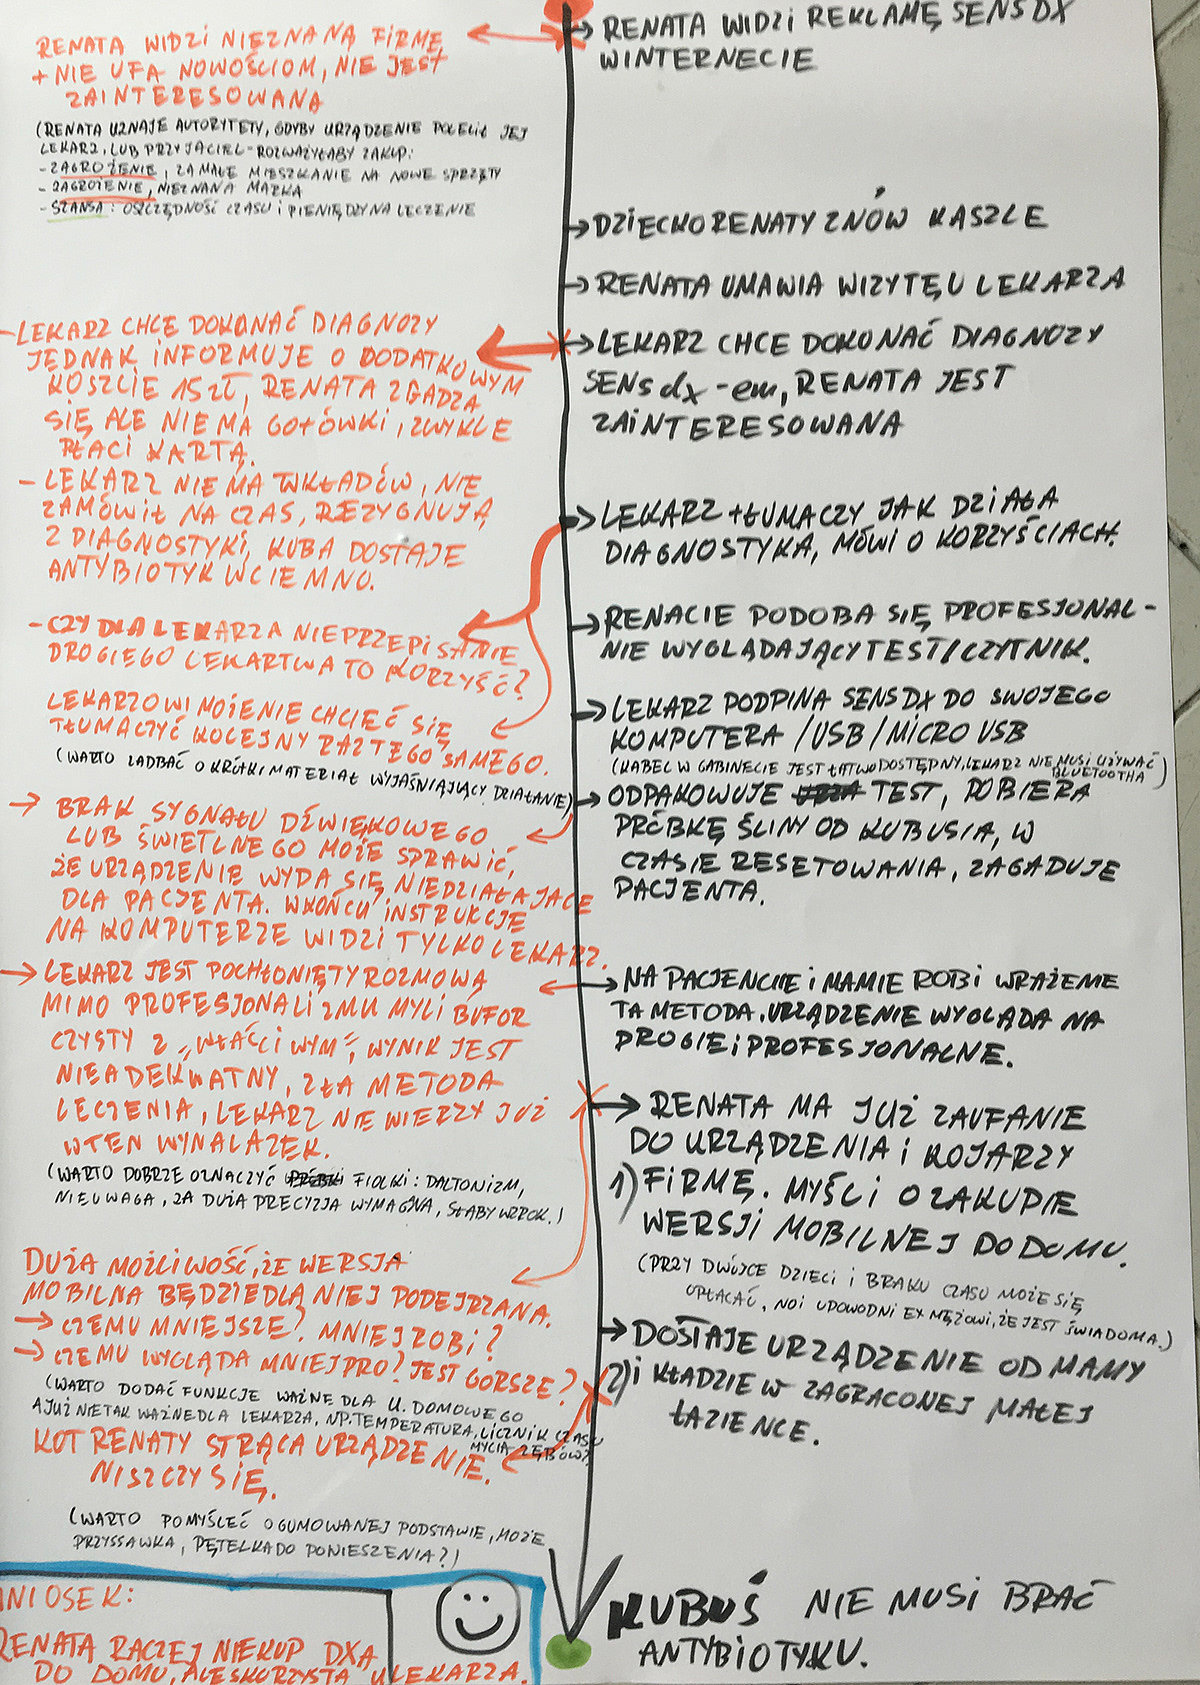 RENATA WIDZI NIEZNANĄ FIRMĘ
+ NIE UFA NOWOŚCIOM, NIE JEST
ZAINTERESOWANA
(RENATA UZNAJE AUTORYTETY, GDYBY URZĄDZENIE POLECIŁ JEJ
LEKARZ, LUB PRZYJACIEL - ROZWAŻYŁABY ZAKUP:
- ZAGROŻENIE, ZA MAŁE MIESZKANIE NA NOWE SPRZĘTY
- ZAGROŻENIE, NIEZNANA MARKA
- SZANSA: OSZCZĘDNOŚĆ CZASU I PIENIĘDZY NA LECZENIE
- LEKARZ CHCE DOKONAĆ DIAGNOZY
JEDNAK INFORMUJE O DODATKOWYM
KOSZCIE 15ZŁ, RENATA ZGADZA
SIĘ ALE NIE MA GOTÓWKI, ZWYKLE
PŁACI KARTĄ.
- LEKARZ NIE MA WKŁADÓW, NIE
ZAMÓWIŁ NA CZAS, REZYGNUJĄ
Z DIAGNOSTYKI, KUBA DOSTAJE
ANTYBIOTYK W CIEMNO.
- CZY DLA LEKARZA NIEPRZEPISANIE
DROGIEGO LEKARTWA TO KORZYŚĆ?
LEKARZOWI MOŻE NIE CHCIEĆ SIĘ
TŁUMACZYĆ KOLEJNY RAZ TEGO SAMEGO.
(WARTO ZADBAĆ O KRÓTKI MATERIAŁ WYJAŚNIAJĄCY DZIAŁANIE)
→ BRAK SYGNAŁU DŹWIĘKOWEGO
LUB ŚWIETLNEGO MOŻE SPRAWIĆ,
ŻE URZĄDZENIE WYDA SIĘ NIEDZIAŁAJĄCE
DLA PACJENTA. WKOŃCU INSTRUKCJE
NA KOMPUTERZE WIDZI TYLKO LEKARZ.
→ LEKARZ JEST POCHŁONIĘTY ROZMOWĄ
MIMO PROFESJONALIZMU MYLI BUFOR
CZYSTY Z „WŁAŚCIWYM”, WYNIK JEST
NIEADEKWATNY, ZŁA METODA
LECZENIA, LEKARZ NIE WIERZY JUŻ
W TEN WYNALAZEK.
(WARTO DOBRZE OZNACZYĆ FIOLKI: DALTONIZM,
NIEUWAGA, ZA DUŻA PRECYZJA WYMAGANA, SŁABY WZROK.)
DUŻA MOŻLIWOŚĆ, ŻE WERSJA
MOBILNA BĘDZIE DLA NIEJ PODEJRZANA.
→ CZEMU MNIEJSZE? MNIEJ ROBI?
→ CZEMU WYGLĄDA MNIEJ PRO? JEST GORSZE?
(WARTO DODAĆ FUNKCJE WAŻNE DLA U. DOMOWEGO
A JUŻ NIE TAK WAŻNE DLA LEKARZA, NP. TEMPERATURA, LICZNIK CZASU
MYCIA ZĘBÓW?
KOT RENATY STRĄCA URZĄDZENIE.
NISZCZY SIĘ.
(WARTO POMYŚLEĆ O GUMOWANEJ PODSTAWIE, MOŻE
PRZYSSAWKA, PĘTELKA DO PONIESZENIA?)
NIOSEK:
RENATA RACZEJ NIE KUP DXA
DO DOMU, ALE SKORZYSTA U LEKARZA.
→ RENATA WIDZI REKLAMĘ SENSDX
W INTERNECIE
→ DZIECKO RENATY ZNÓW KASZLE
→ RENATA UMAWIA WIZYTĘ U LEKARZA
→ LEKARZ CHCE DOKONAĆ DIAGNOZY
SENSdx-em, RENATA JEST
ZAINTERESOWANA
→ LEKARZ TŁUMACZY JAK DZIAŁA
DIAGNOSTYKA, MÓWI O KORZYŚCIACH.
→ RENACIE PODOBA SIĘ PROFESJONAL-
NIE WYGLĄDAJĄCY TEST/CZYTNIK.
→ LEKARZ PODPINA SENSDX DO SWOJEGO
KOMPUTERA /USB/MICRO USB
(KABEL W GABINECIE JEST ŁATWO DOSTĘPNY, LEKARZ NIE MUSI UŻYWAĆ
BLUETOOTHA)
→ ODPAKOWUJE TEST, POBIERA
PRÓBKĘ ŚLINY OD KUBUSIA, W
CZASIE RESETOWANIA, ZAGADUJE
PACJENTA.
→ NA PACJENCIE I MAMIE ROBI WRAŻENIE
TA METODA. URZĄDZENIE WYGLĄDA NA
DROGIE I PROFESJONALNE.
→ RENATA MA JUŻ ZAUFANIE
DO URZĄDZENIA I KOJARZY
1) FIRMĘ. MYŚLI O ZAKUPIE
WERSJI MOBILNEJ DO DOMU.
(PRZY DWÓJCE DZIECI I BRAKU CZASU MOŻE SIĘ
OPŁACAĆ, NO I UDOWODNI EX MĘŻOWI, ŻE JEST ŚWIADOMA.)
→ DOSTAJE URZĄDZENIE OD MAMY
2) I KŁADZIE W ZAGRACONEJ MAŁEJ
ŁAZIENCE.
KUBUŚ NIE MUSI BRAĆ
ANTYBIOTYKU.